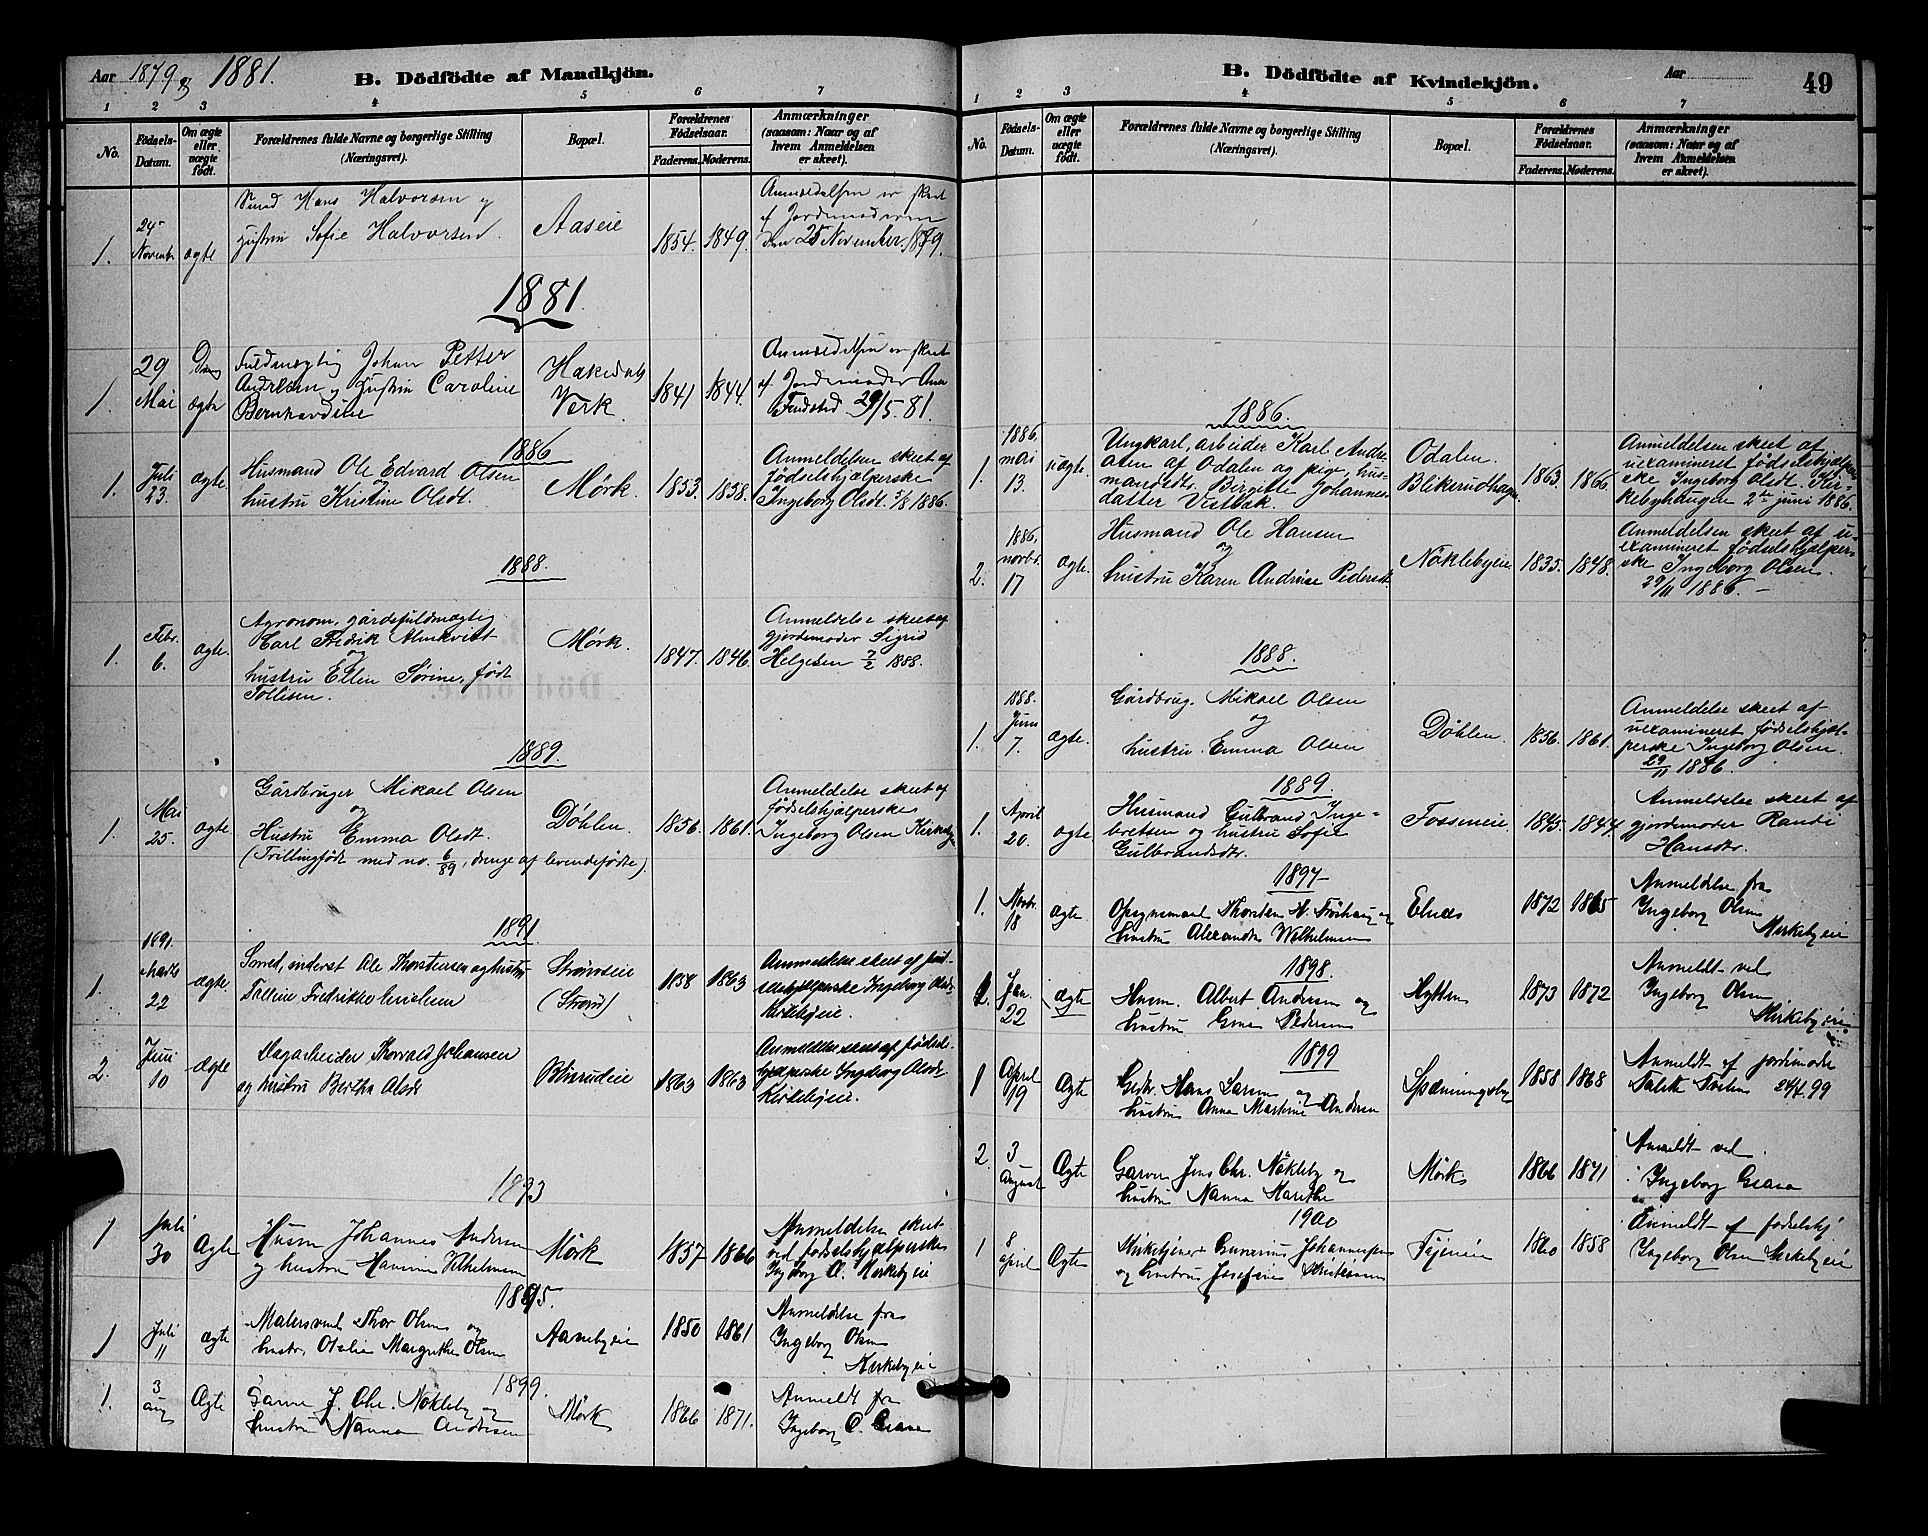 Aar 1879 & 1881.
B. Dödfödte af Mandkjön.
1 2 3 4 5 6 7
No.
Födsels-Datum.
Om ægte eller uægte födt.
Forældrenes fulde Navne og borgerlige Stilling (Næringsvei).
Bopæl.
Forældrenes Födselsaar.
Faderens. Moderens.
Anmærkninger (saasom: Naar og af hvem Anmeldelsen er skeet).
Smed Hans Halvorsen og
Hustru Sofie Halvorsen.
1. 25 Novemb. ægte
Aaseie
1854. 1849.
Anmeldelsen er skeet
af Jordemoderen
den 25 November 1879.
1881
1. 29 Mai
Dreng ægte
Fuldmægtig Johan Petter
Andresen og Hustru Caroline
Bernhardine
Hakedals
Verk.
1841 1844.
Anmeldelsen er skeet
af Jordemoder Ana
Fredsted 29/5. 81.
1886
1. Juli 23. ægte.
Husmand Ole Edvard Olsen
og
hustru Kristine Olsdt.
Mørk.
1853. 1858.
Anmeldelsen skeet af
fødselshjælperske
Ingeborg Olsdt. 3/8 1886.
1888.
1. Febr. 6. ægte.
Agronom, gårdsfuldmægtig
Carl Fredrik Almkvist
og
hustru Ellen Sørine, født
Tollesen.
Mørk.
1847. 1846.
Anmeldelse skeet af
gjordemoder Sigrid
Helgesen 7/2 1888.
1889.
1. Mai 25. ægte.
Gårdbruger Mikael Olsen
og
Hustru Emma Olsdt.
(Trillingfødt med no. 6/89, drenge af levendefødte).
Døhlen.
1856. 1861.
Anmeldelse skeet af
fødselshjælperske
Ingeborg Olsen Kirkeby
1891.
1. 1891. Marts 22 ægte.
Smed, inderst Ole Thorstensen og hustru
Talline Fredrikke
Strømseie
(Strøm)
1858 1863
Anmeldelse skeet af føds-
selshjælperske Ingeborg Olsdt
Kirkebyeie.
2. Juni 10 ægte
Dagarbeider Thorvald Johansen
og hustru Bertha Olsdt
1863 1863
Anmeldelse skeet af fødsels-
hjælperske Ingeborg Olsdt
Kirkebyeie.
1893
1 Juli 30 Ægte
Husm Johannes Andersen
og hustru Hansine Vilhelmsen
Mørk
1857 1866
Anmeldelse skeet
ved fødselshjælperske
Ingeborg O. Kirkebyeie
1895.
1 Juli 11 ægte
Malersvend Thor Olsen og
hustr. Otelie Margrethe Olsen
Aanebyeie
1850 1861
Anmeldelse fra
Ingeborg Olsen
Kirkebyeie
1899.
1. 3 aug Ægte
Garver J. Chr. Nökleby og
hustru Nanna Andresen
Mørk
1866 1871.
Anmeldt fra
Ingeborg O. Grava
B. Dödfödte af Kvindekjön.
Aar
49
1 2 3 4 5 6 7
No.
Födsels-Datum.
Om ægte eller uægte födt.
Forældrenes fulde Navne og borgerlige Stilling (Næringsvei).
Bopæl.
Forældrenes Födselsaar.
Faderens. Moderens.
Anmærkninger (saasom: Naar og af hvem Anmeldelsen er skeet).
1886.
1. 1886. mai 13. uægte.
Ungkarl, arbeider Karl Andre-
asen af Odalen og pige, hus-
mandsdtr. Birgitte Johannes-
datter Vestbak.
Odalen.
Blikerudhagen
1863. 1866.
Anmeldelsen skeet af
uexamineret fødselshjælper-
ske Ingeborg Olsdt. Kir-
kebyhaugen 2den juni 1886.
2. 1886. novbr. 17 ægte.
Husmand Ole Hansen
og
hustru Karen Andrine Pedersdt.
Nöklebyeie
1835. 1848.
Anmeldelsen skeet af u-
examineret fødselshjælper-
ske Ingeborg Olsen.
29/11 1886. —
1888.
1. 1888. Juni 7. ægte.
Gårdbrug. Mikael Olsen
og
hustru Emma Olsen
Døhlen.
1856. 1861.
Anmeldelse skeet af
uexamineret fødselshjæl-
perske Ingeborg Olsen.
29/11 1886.
1889.
1. April 20. ægte
Husmand Gulbrand Inge-
bretsen og hustru Sofie
Gulbrandsdtr.
Fosseneie.
1845. 1844
Anmeldelse skeet af
gjordemoder Randi
Hansdtr.
1897
1. Novbr. 18 ægte
Opsynsmand Thorsten N. Fröhaug og
hustru Alexandra Wilhelmsen
Elnæs
1872 1865
Anmeldelse fra
Ingeborg Olsen
Kirkebyeie
1898.
1. Jan. 22 ægte
Husm. Albert Andersen og
hustru Pedersen
Hytten
1873 1872
Anmeldt ved
Ingeborg Olsen
Kirkebyeie
1899
1 April 19 Ægte
Gbr. Hans Larsen og
hustru Anna Martine Andersen
Spænningsby
1858 1868
Anmeldt af jordmoder
24/4. 99
2. 3 August Ægte
Garver Jens Chr. Nökleby og
hustru Nanna Marthe
Mörk
1866 1871
Anmeldt ved
Ingeborg Grava
1900
1 8 april Ægte
Kirketjener Gunerius Johannessen
og hustru Josefine Kristiansen
1860 1858
Anmeldt af fødselshj
Ingeborg Olsen Kirkebyeie